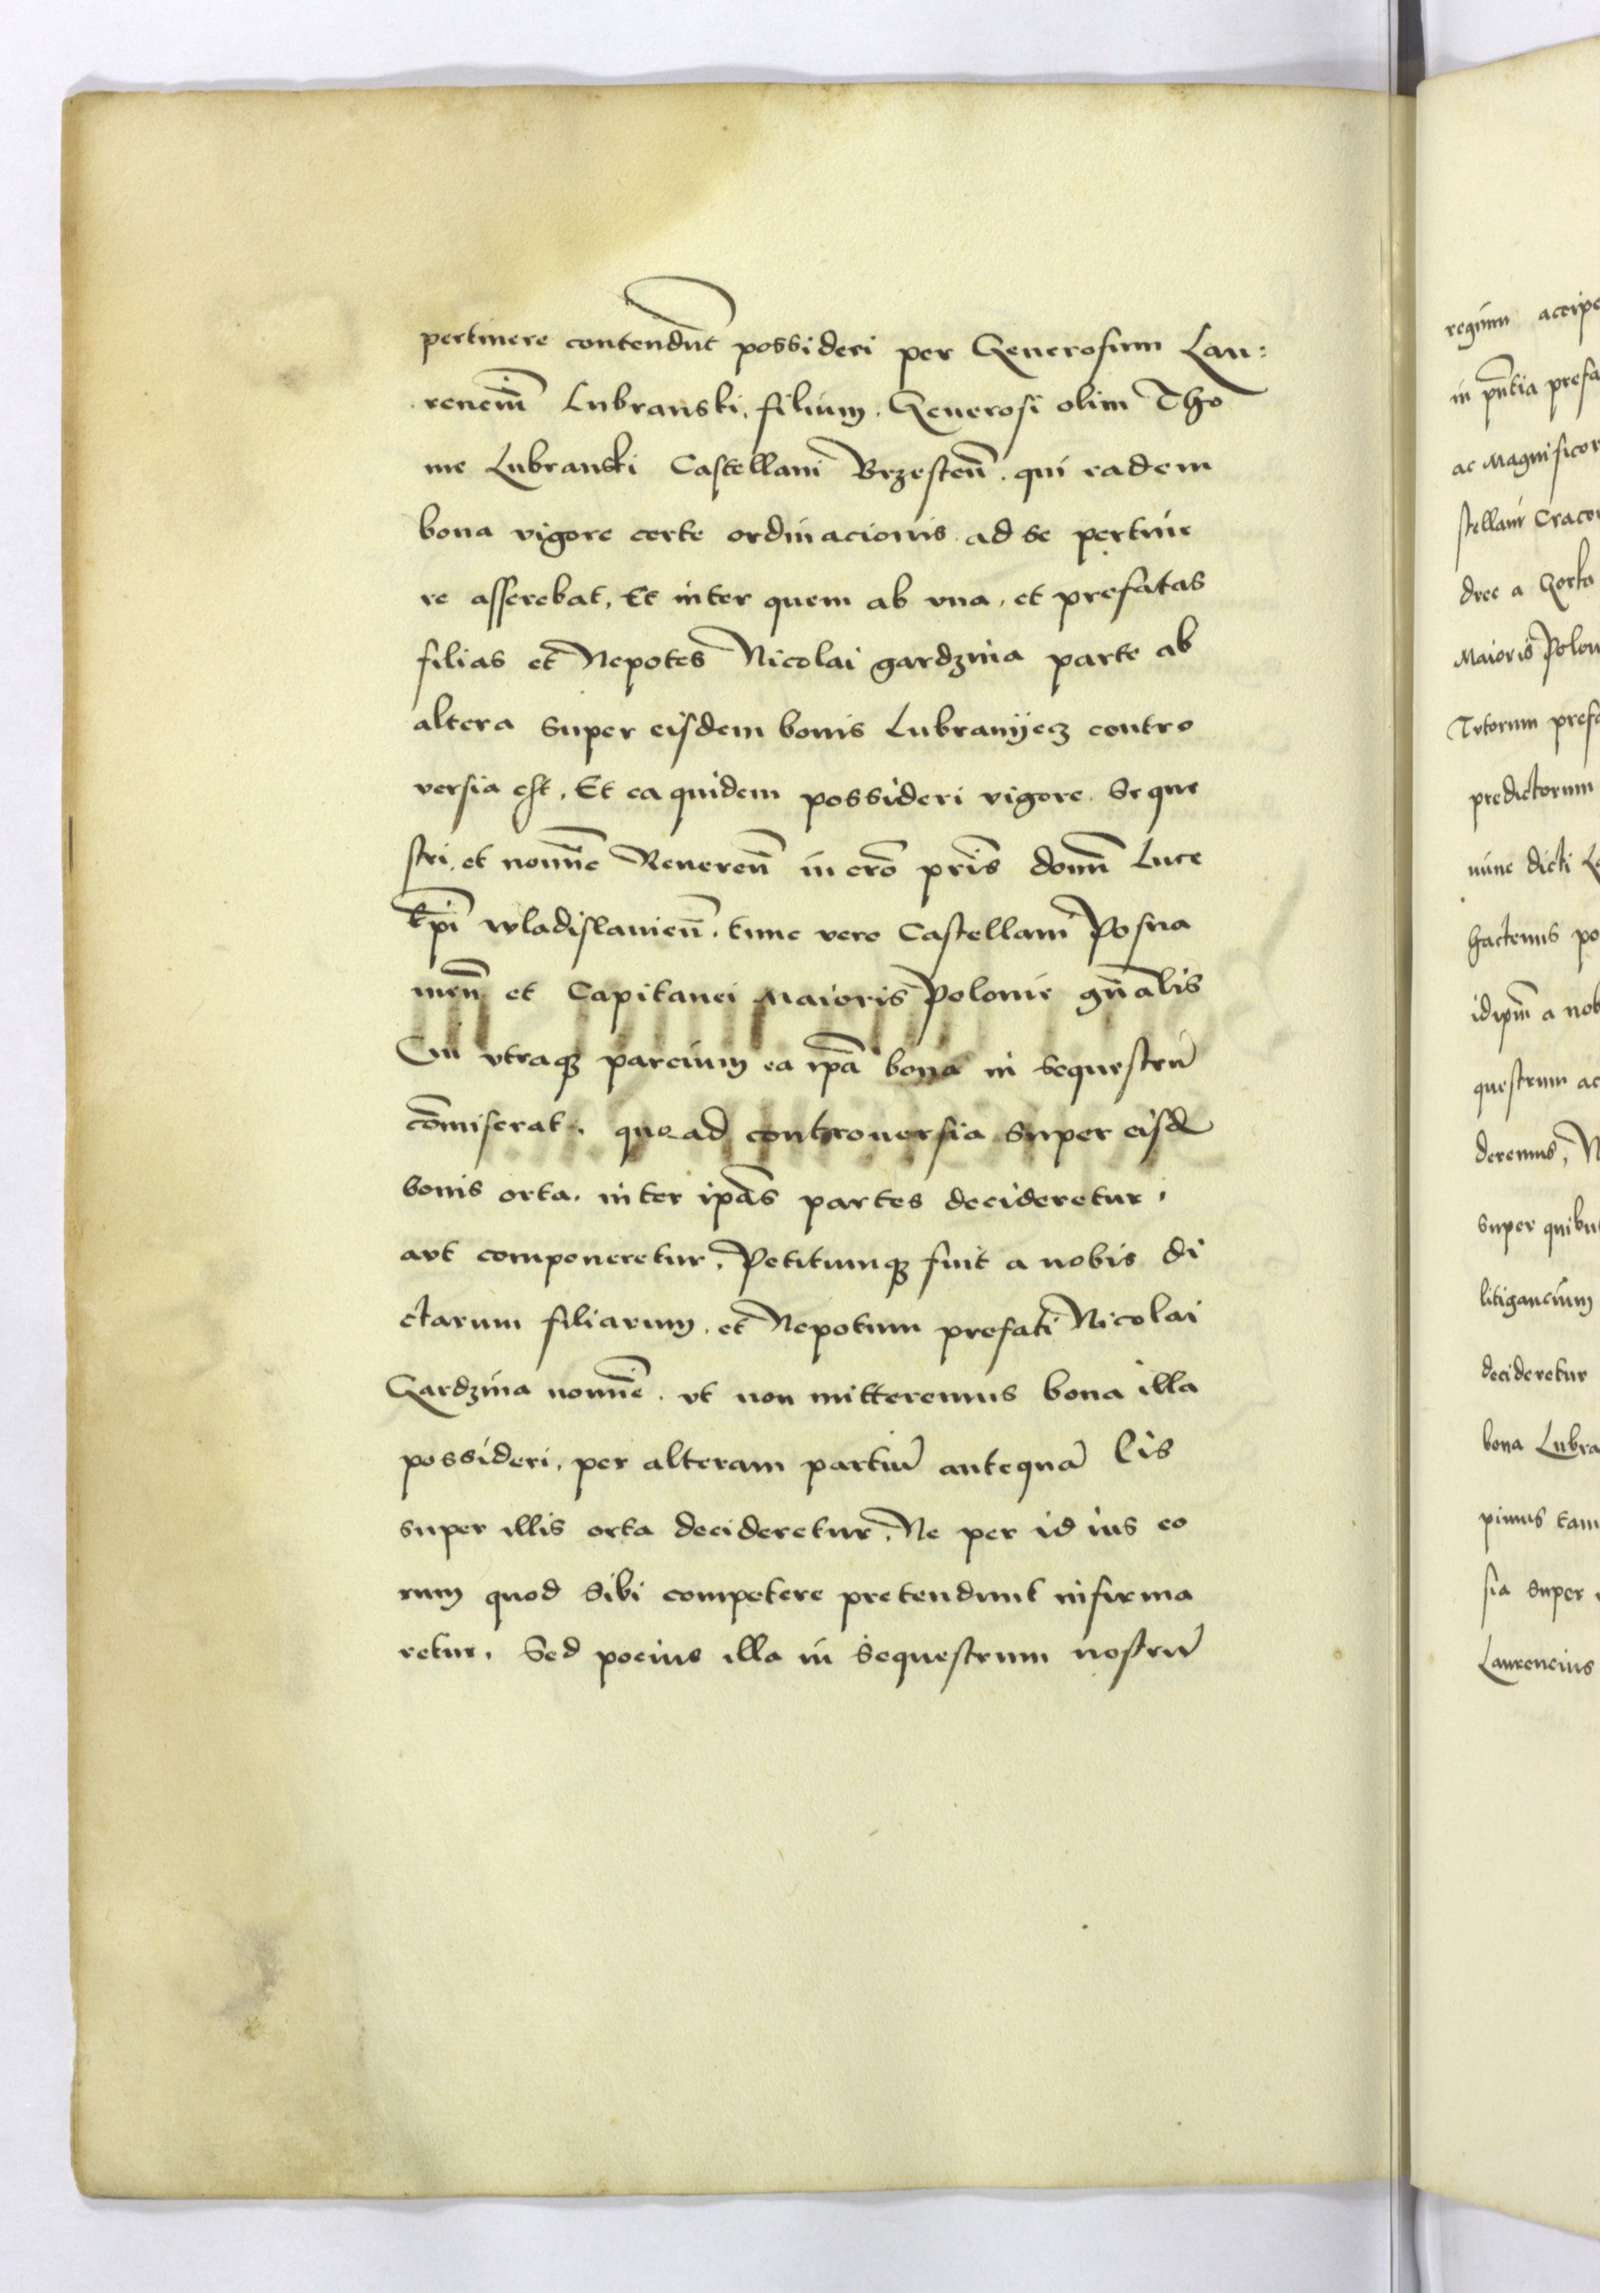 pertinere contendūt possideri per Generosum Lau:
renciū Lubranski. filium. Generosi olim Tho
me Lubranski Castellani Brzesteñ. qui eadem
bona vigore certe ordinacionis ad se pertine
re asserebat, Et inter quem ab vna, et prefatas
filias et Nepotes Nicolai gardzina parte ab
altera super eisdem bonis Lubranijecz contro
versia est, Et ea quidem possideri vigore. Seque
stri, et nomīe Reuereñ in cr̃o pr̃is domñ Luce
Ep̃i wladislauieñ. tunc vero Castellani Posna
nieñ et Capitanei Maioris Polonie gñalis
Cui vtraqȝ parcium ea ip̃a bona in sequestrū
com̃iserat. quo ad controuersia super eisd
bonis orta. inter ip̃as partes decideretur.
aut componeretur. Petitumqȝ fuit a nobis di
ctarum filiarum. et Nepotum prefati Nicolai
Gardzina nomīe. vt non mitteremus bona illa
possideri, per alteram partiū antequā lis
super illis orta decideretur, Ne per id ius eo
rum quod sibi competere pretendunt infirma
retur. Sed pocius illa in Sequestrum nostrū
regium
in pñtia
ac Magnificor
stellani
dree a Gorka
Maioris Polon
Tutorum
predictorum
nunc dicti
hactenus
idip̃m a nob
questrum
deremus,
super quibus
litigancium
decideretur
bona Lubra
pimus
sia super
Laurencius